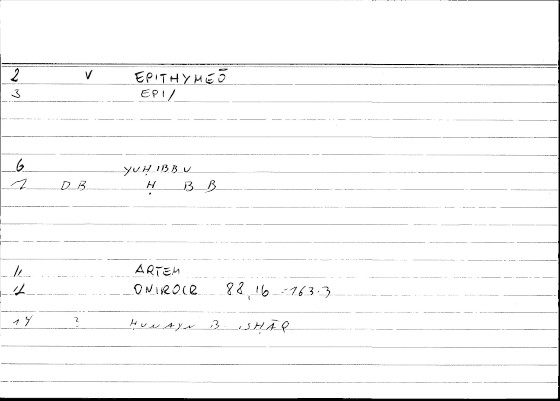 2 V EPITHYMEŌ
3 EPI/
6 YUḤIBBU
7 DB Ḥ B B
11 ARTEM
12 ONIROCR 88,16 - 163.3
14 ? ḤUNAYN B. ISḤĀQ